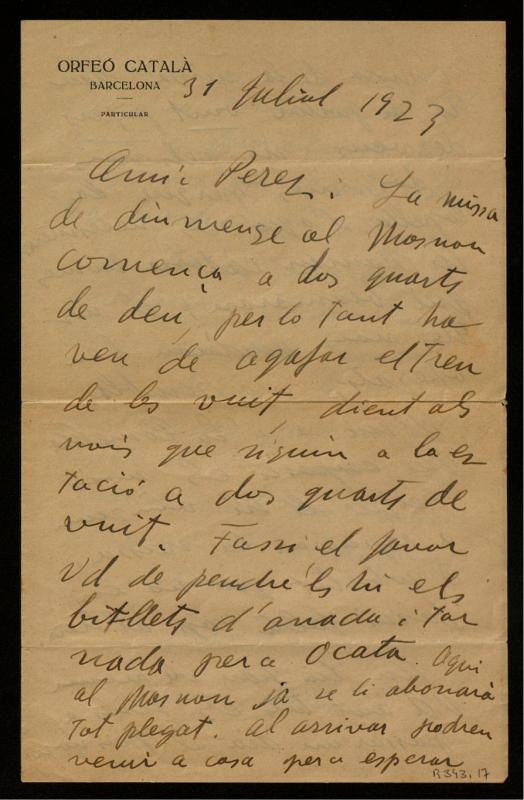 ORFEÓ CATALÀ
BARCELONA
PARTICULAR
31 Juliol 1923
Amic Perez: La missa
de diumenge al Masnou
comença a dos quarts
de deu, per lo tant ha
ven de agafar el tren
de les vuit, dient als
nois que siguin a la es
tació a dos quarts de
vuit. Fassi el favor
Vd de pendre'ls hi els
bitllets d'anada i tor
nada per a Ocata. Aqui
al Masnou ja se li abonarà
tot plegat. Al arrivar podren
venir a casa per a esperar
R343.17